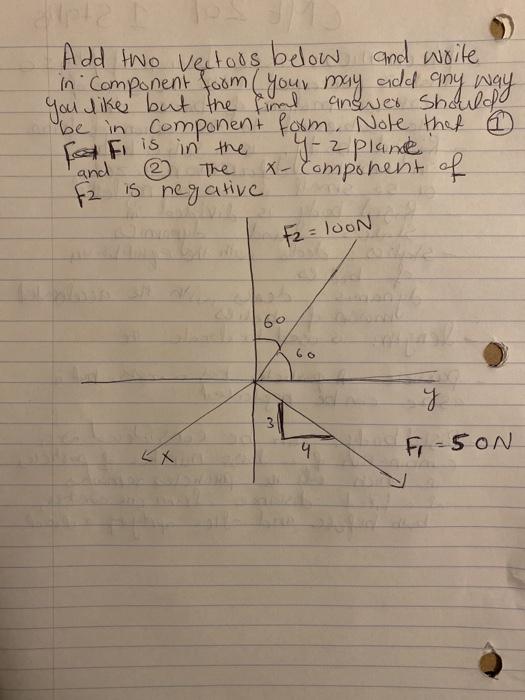 Add two vectors below and write
in component form (your may add any way
you like but the final answer should
be in component form. Note that ①
F1 is in the y-z plane
and ② The x-component of
F2 is negative
F2 = 100N
60
60
y
3
4
F1 = 50N
x